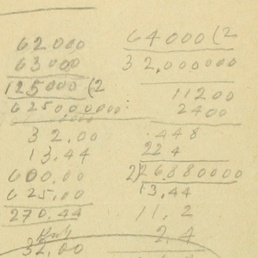 62000
63000
125000 (2
6250000000:
32.00
13.44
600.00
625.00
270.44
32.00
64000 (2
32,000000
11200
2400
.448
224
2)26880000
13,44
11,2
2,4